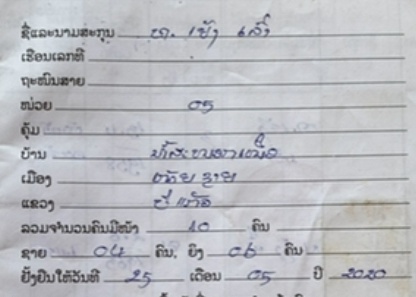 ຊື່ແລະນາມສະກຸນ ທ. ເຢັງ ເລົ່າ
ເຮືອນເລກທີ
ຖະໜົນສາຍ
ໜ່ວຍ 05
ຄຸ້ມ
ບ້ານ
ເມືອງ
ແຂວງ
ລວມຈຳນວນຄົນມີໜ້າ 10 ຄົນ
ຊາຍ 04 ຄົນ, ຍິງ 06 ຄົນ
ຢັ້ງຢືນໃຫ້ວັນທີ 25 ເດືອນ 05 ປີ 2020